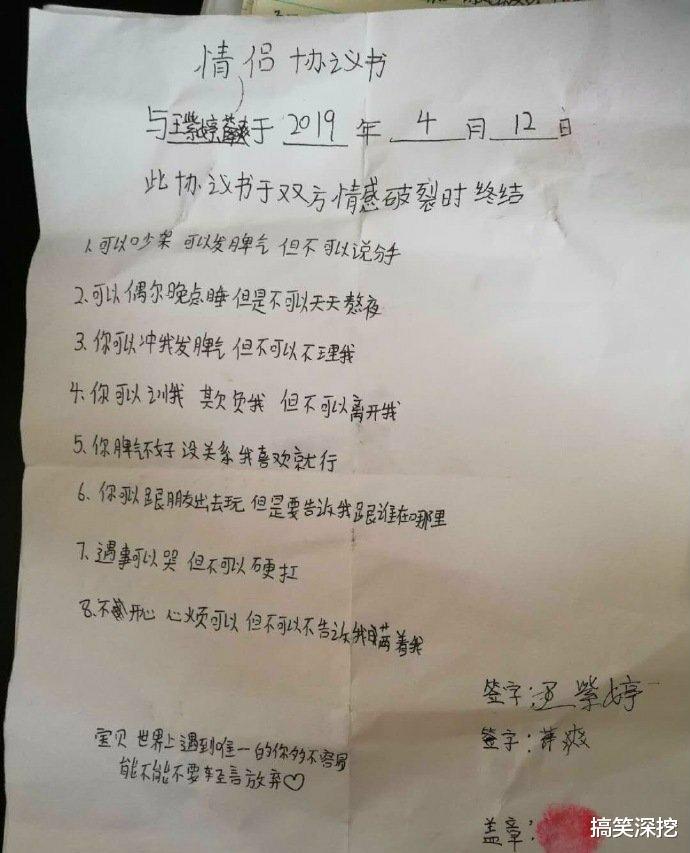 情侣协议书
与王紫婷薛爽于 2019 年 4 月 12 日
此协议书于双方情感破裂时终结
1.可以吵架 可以发脾气 但不可以说分手
2.可以偶尔晚点睡 但是不可以天天熬夜
3.你可以冲我发脾气 但不可以不理我
4.你可以训我 欺负我 但不可以离开我
5.你脾气不好 没关系 我喜欢就行
6.你可以跟朋友出去玩 但是要告诉我跟谁在哪里
7.遇事可以哭 但不可以硬扛
8.不开心 心烦可以 但不可以不告诉我瞒着我
签字:王紫婷
签字:薛爽
宝贝 世界上遇到唯一的你多不容易
能不能不要轻言放弃♡
盖章:
搞笑深挖